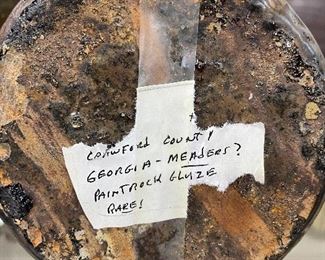 CRAWFORD COUNTY
GEORGIA - MEADERS?
PAINTROCK GLUZE
RARE!